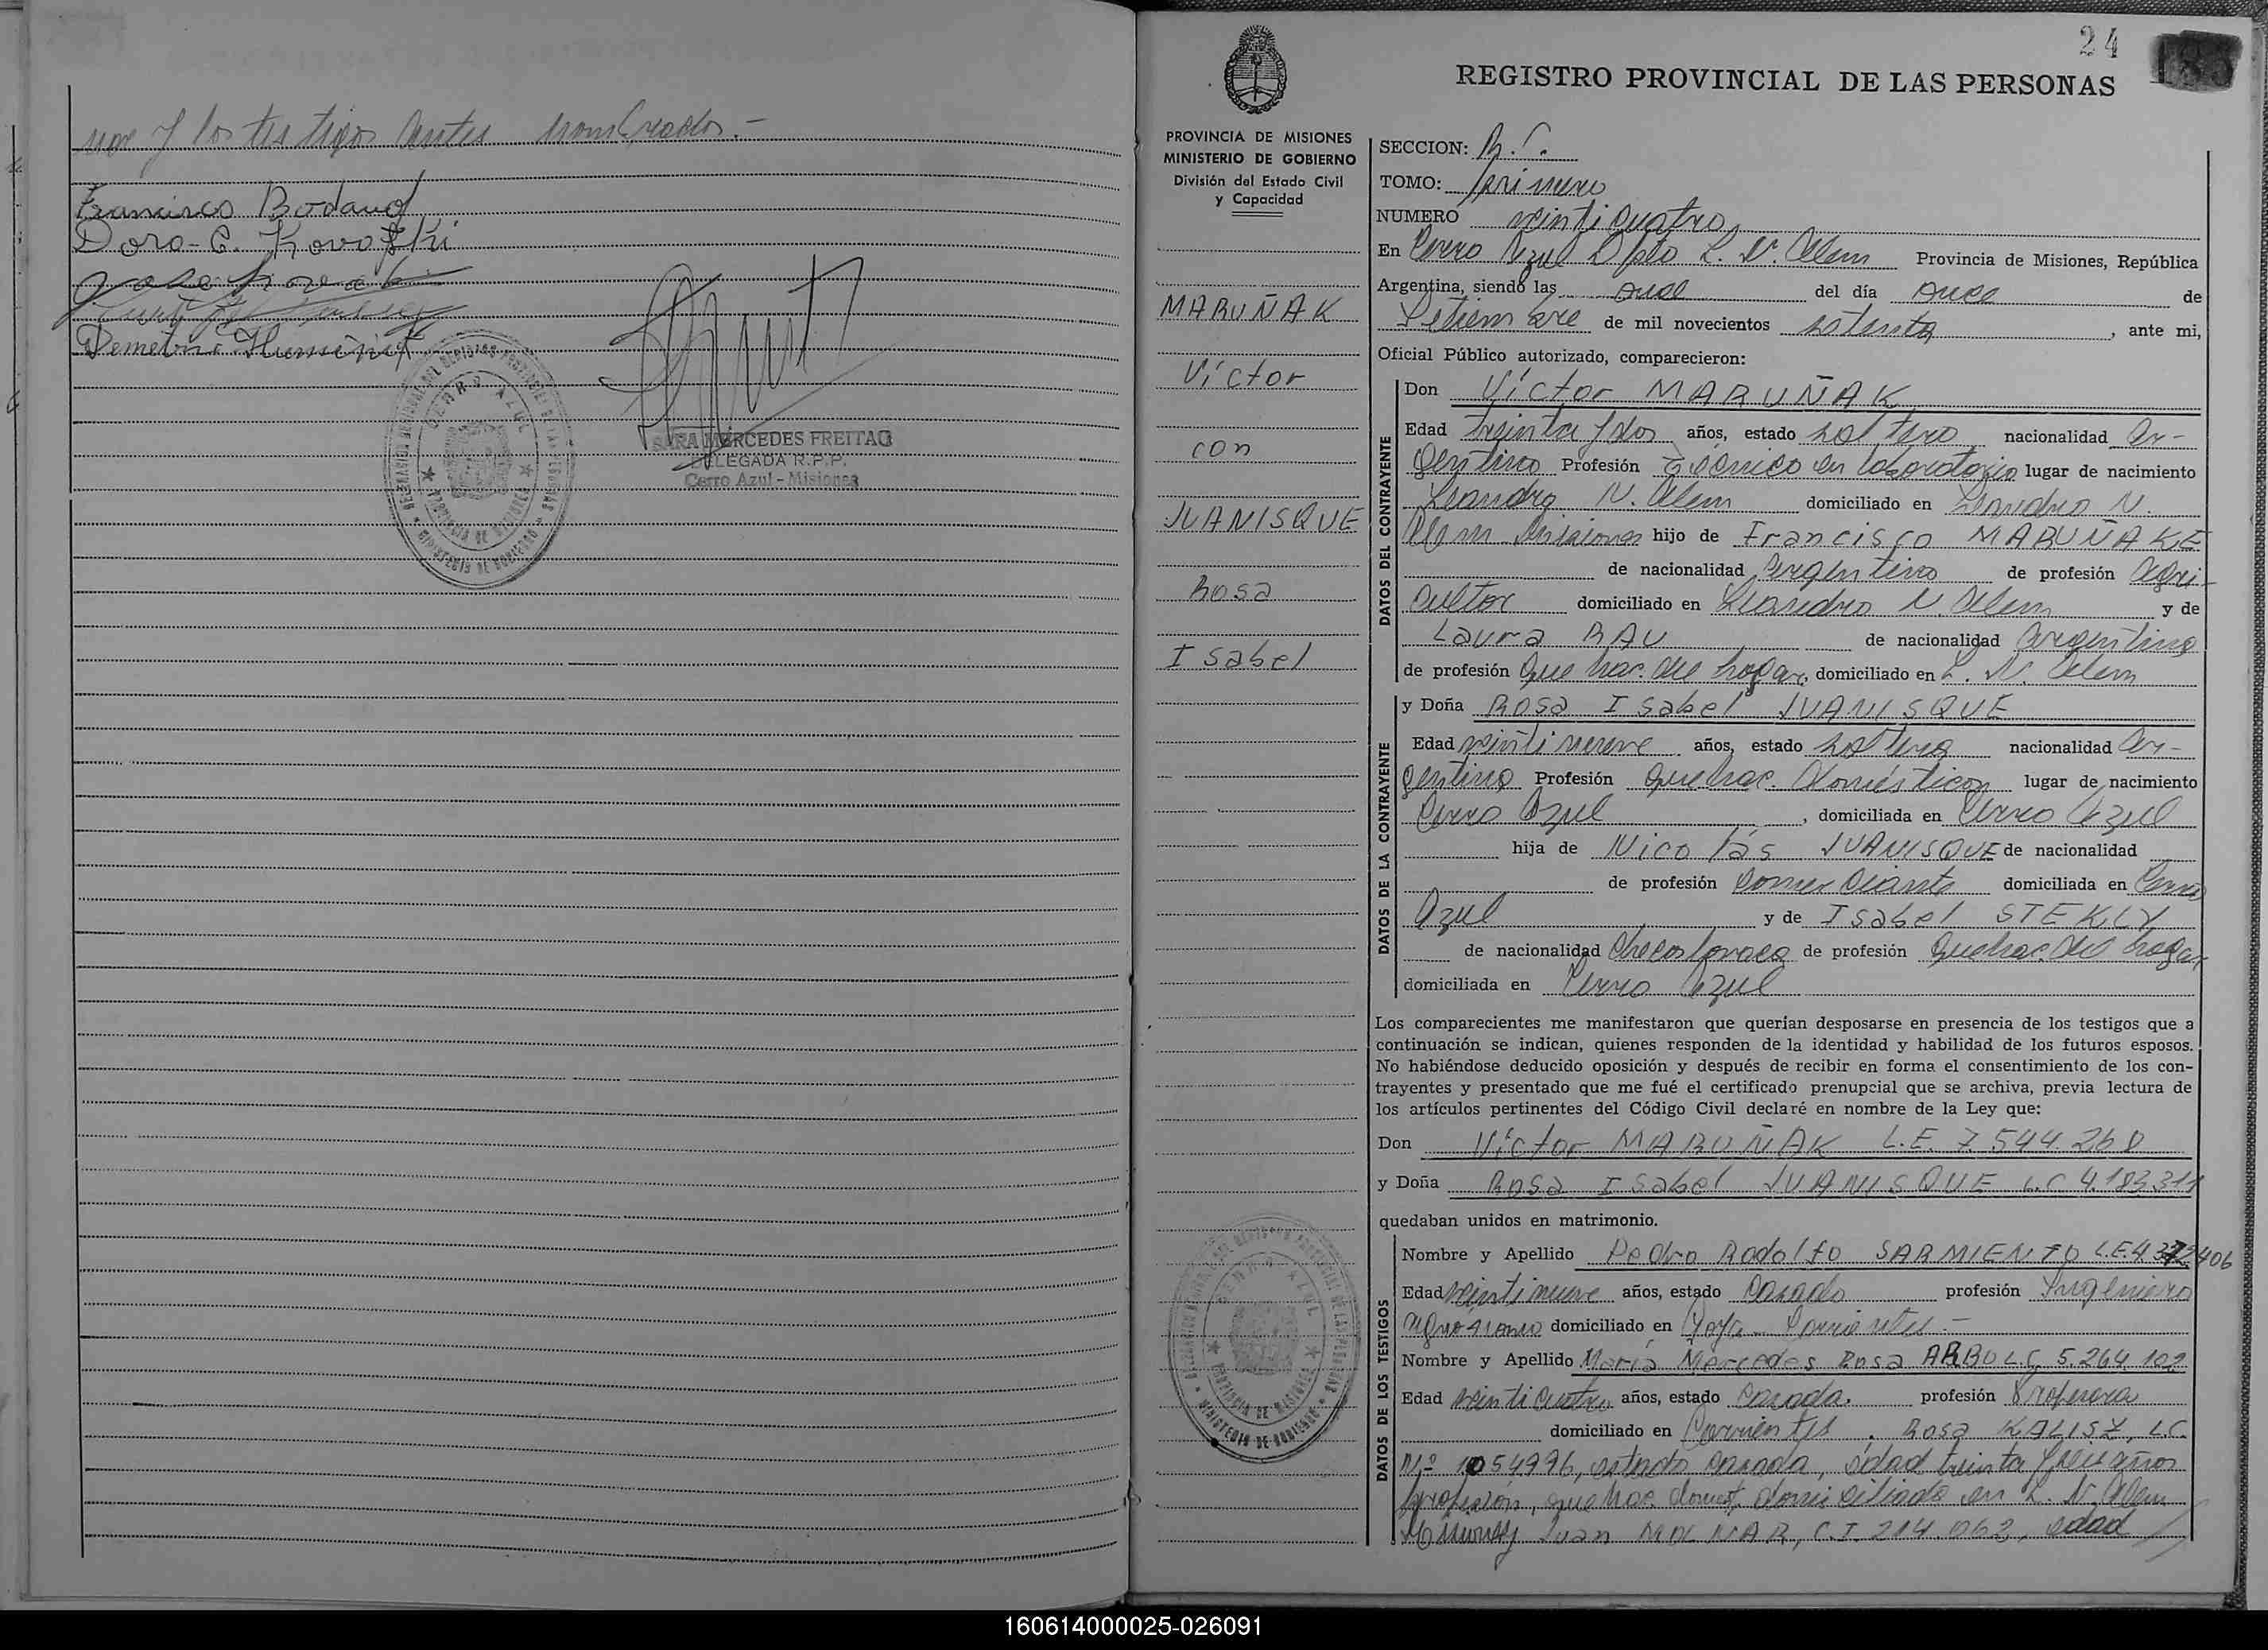 nor y los testigos antes nombrados.-
Francisco Bodano
Dora C.
Demetrio
SARA MERCEDES FREITAG
DELEGADA R.P.P.
Cerro Azul - Misiones
24
REGISTRO PROVINCIAL DE LAS PERSONAS
PROVINCIA DE MISIONES
MINISTERIO DE GOBIERNO
División del Estado Civil
y Capacidad
MARUÑAK
Víctor
con
JUANISQUE
Rosa
Isabel
SECCION: R.C.
TOMO: primero
NUMERO veinticuatro
En Cerro Azul Dpto L. N. Alem Provincia de Misiones, República
Argentina, siendo las once del día once de
Setiembre de mil novecientos setenta, ante mi,
Oficial Público autorizado, comparecieron:
DATOS DEL CONTRAYENTE
Don Víctor MARUÑAK
Edad treinta y dos años, estado soltero nacionalidad Ar-
gentino Profesión Técnico en laboratorio lugar de nacimiento
Leandro N. Alem domiciliado en Leandro N.
Alem Misiones hijo de Francisco MARUÑAKE
de nacionalidad Argentino de profesión Agri-
cultor domiciliado en Leandro N. Alem y de
Laura RAU de nacionalidad Argentina
de profesión Quehac. del hogar, domiciliado en L. N. Alem
DATOS DE LA CONTRAYENTE
y Doña Rosa Isabel JUANISQUE
Edad veintinueve años, estado soltera nacionalidad Ar-
gentina Profesión Quehac. Domésticos lugar de nacimiento
Cerro Azul, domiciliada en Cerro Azul
hija de Nicolás JUANISQUE de nacionalidad
de profesión Comerciante domiciliada en Cerro
Azul y de Isabel STEKLY
de nacionalidad Checoslovaca de profesión Quehac. del hogar
domiciliada en Cerro Azul
Los comparecientes me manifestaron que querían desposarse en presencia de los testigos que a
continuación se indican, quienes responden de la identidad y habilidad de los futuros esposos.
No habiéndose deducido oposición y después de recibir en forma el consentimiento de los con-
trayentes y presentado que me fué el certificado prenupcial que se archiva, previa lectura de
los artículos pertinentes del Código Civil declaré en nombre de la Ley que:
Don Víctor MARUÑAK L.E. 7.544.268
y Doña Rosa Isabel JUANISQUE L.C 4.183.311
quedaban unidos en matrimonio.
DATOS DE LOS TESTIGOS
Nombre y Apellido Pedro Rodolfo SARMIENTO L.E. 4.372406
Edad veintinueve años, estado Casado profesión Ingeniero
Agrónomo domiciliado en Goya Corrientes.-
Nombre y Apellido María Mercedes Rosa ARBO L.C. 5.264.102
Edad veinticuatro años, estado Casada. profesión Profesora
domiciliado en Corrientes. Rosa KALISZ, L.C.
Nº 1054996, estado casada, edad treinta y seis años
profesión, quehac. domest. domiciliada en L. N. Alem
Misiones y Juan MOLNAR, C.I. 214.062, edad
160614000025-026091